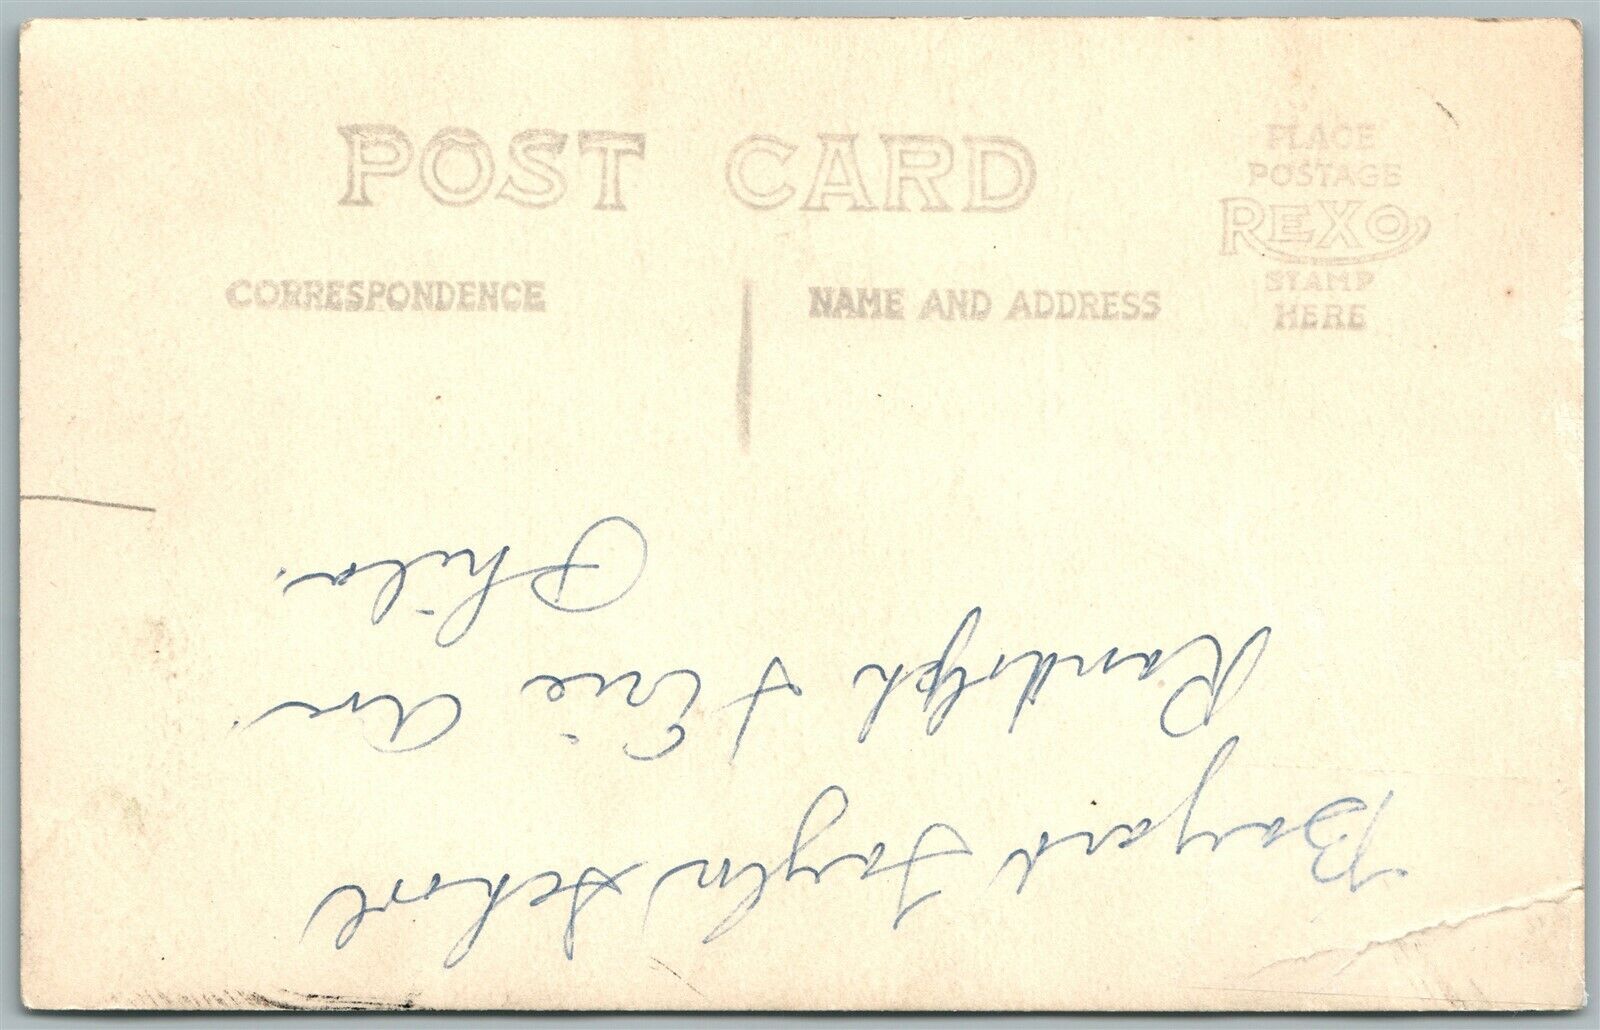 POST CARD
PLACE
POSTAGE
REXO
STAMP
HERE
CORRESPONDENCE
NAME AND ADDRESS
Bayard Taylor School
Randolph & Erie Ave.
Phila.